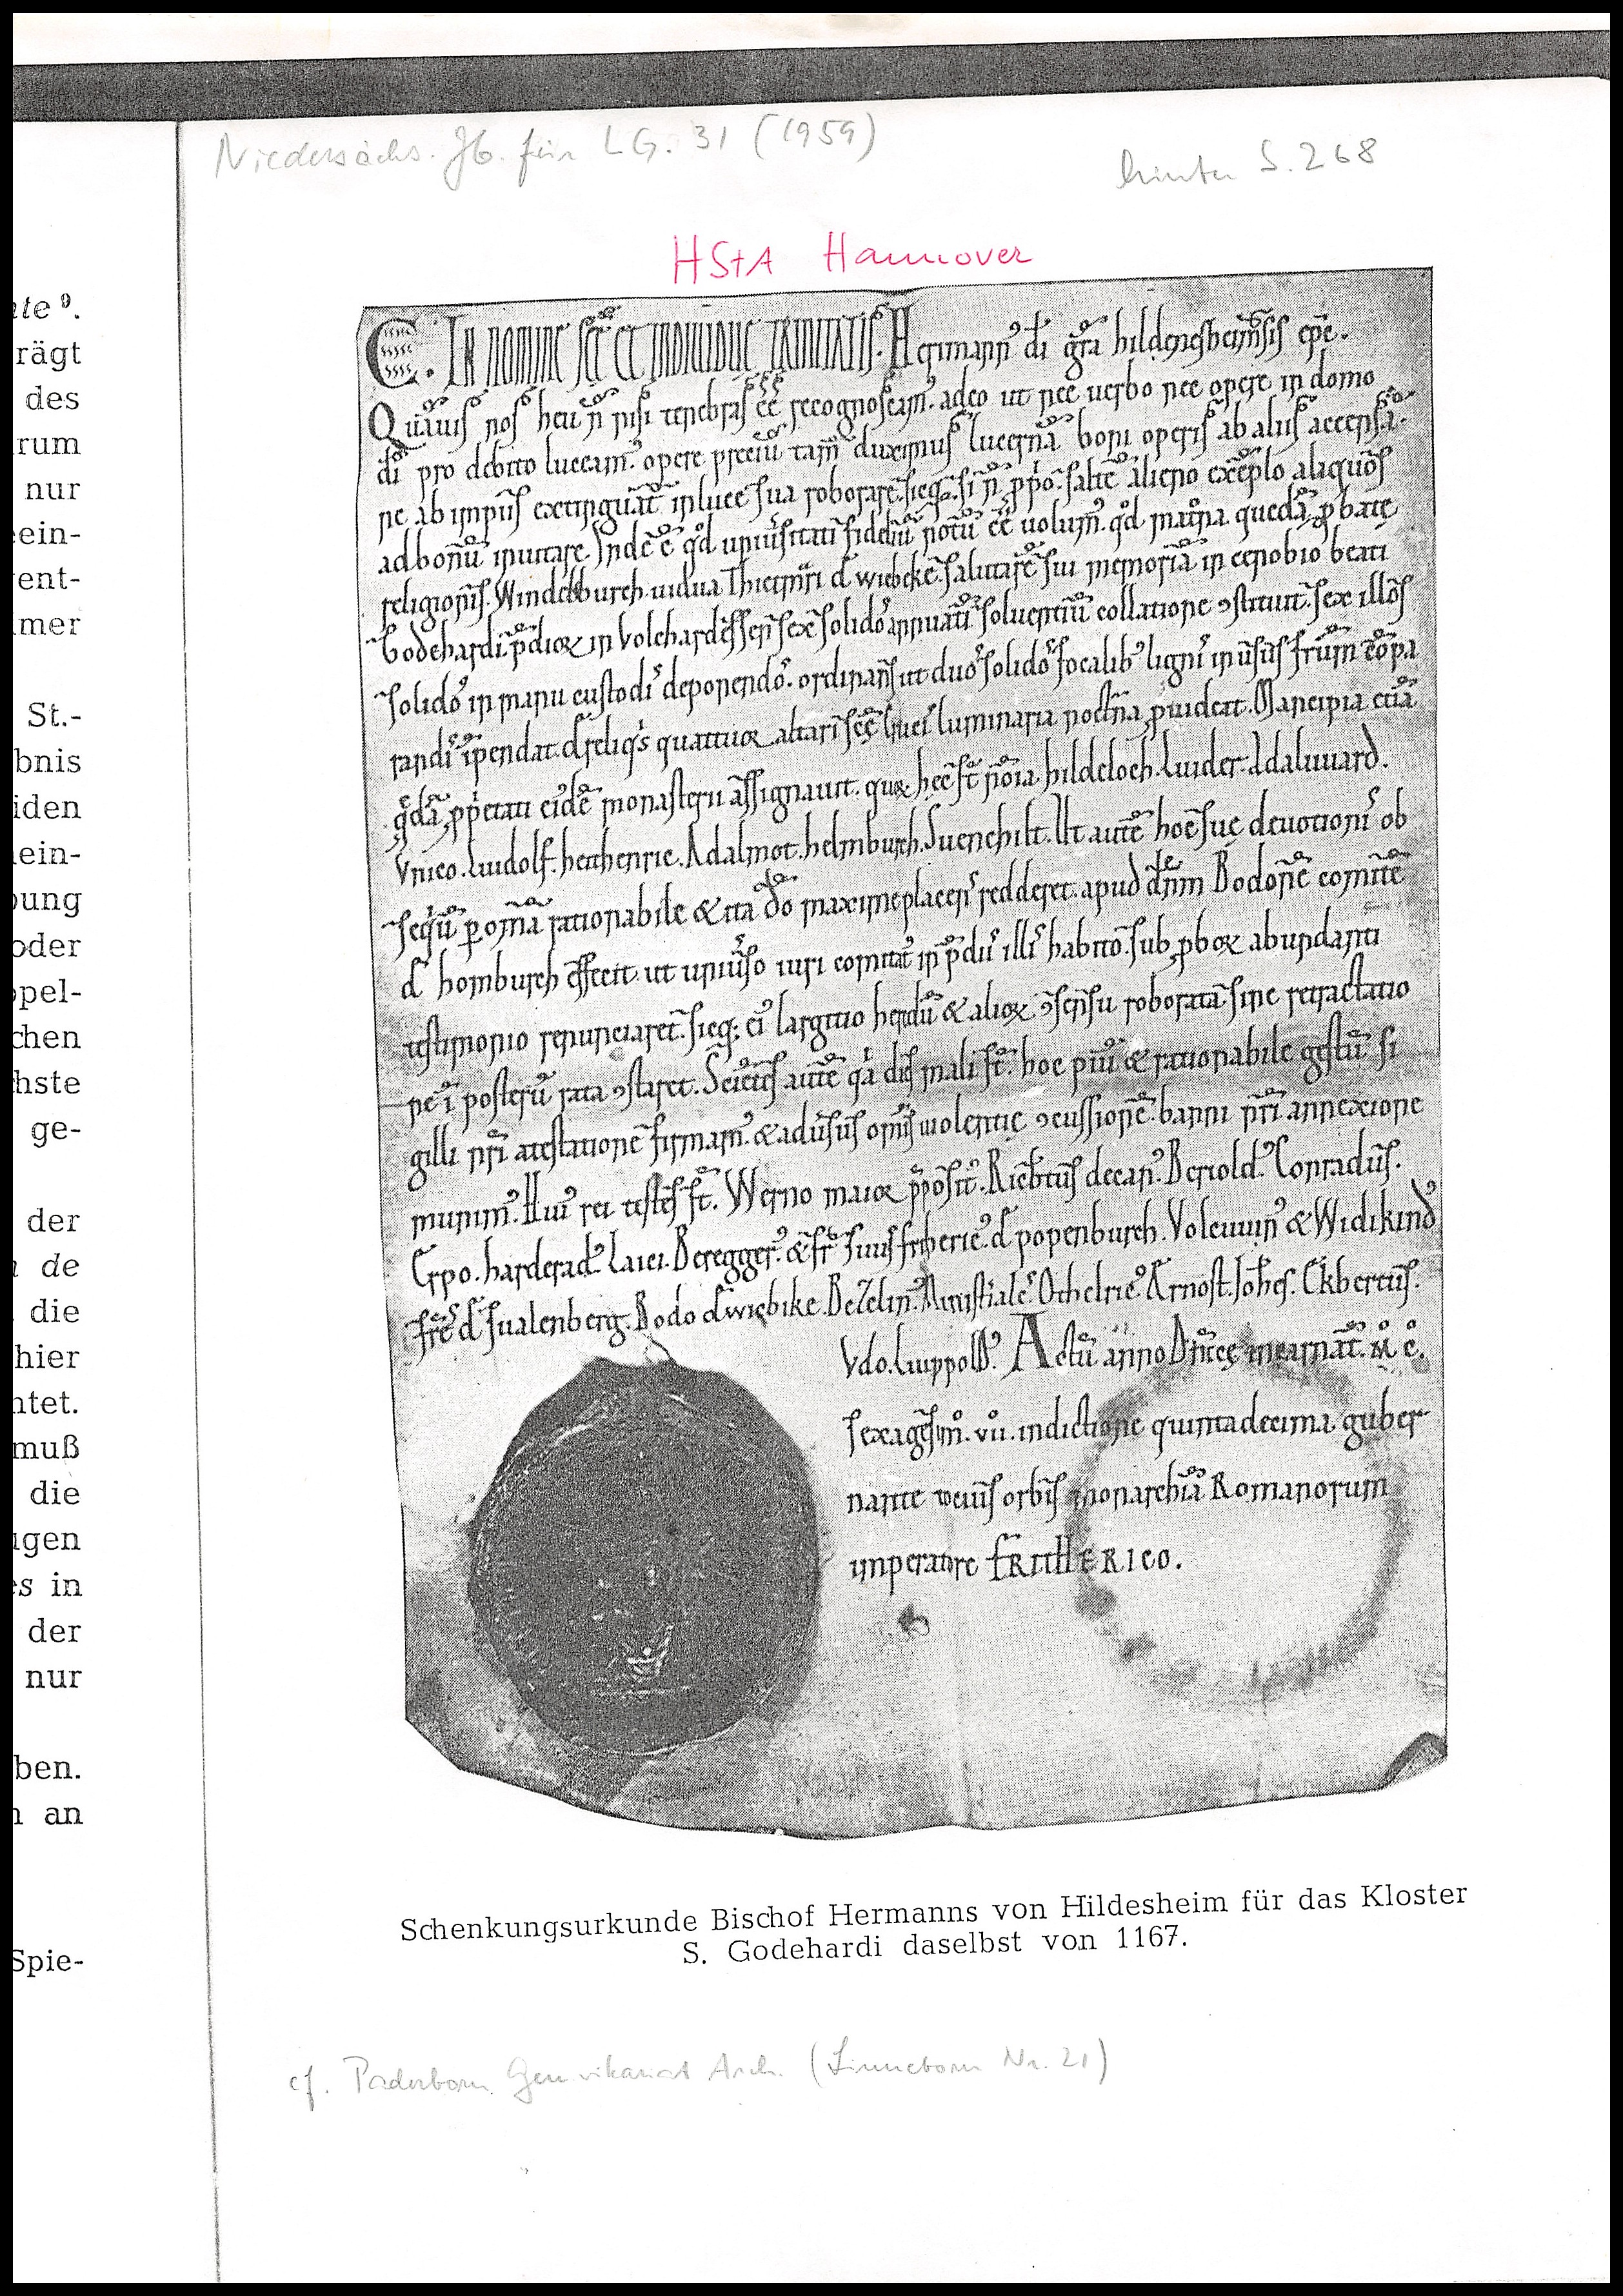 Niedersächs. Jb. für LG. 31 (1959)
hinter S. 268
HStA Hannover
te 9).
rägt
des
rum
nur
ein-
ent-
mer
St.-
bnis
iden
ein-
ung
oder
pel-
chen
hste
ge-
der
de
die
hier
tet.
muß
die
gen
s in
der
nur
ben.
an
Spie-
C. IN NOMINE SCE ET INDIVIDUE TRINITATIS. Herimann' di gra hildenesheimensis epc.
Quāuis nos heu n̄ nisi tenebras ēē recognoscam'. adeo ut nec uerbo nec opere in domo
di pro debito luceam'. opere preciū tam̄ duximus lucernā boni operis ab aliis accensā.
ne ab impiis extinguat̄ in luce sua roborare. sicq; si n̄ pprio saltē alieno exēplo aliquos
ad bonū inuitare. Inde ē qd uniūsitati fideliū notū ēē uolum'. qd mat̄na quedā pbate
religionis. Windelburch uidua Thietmari d wiebeke salutarē sui memoriā in cenobio beati
Godehardi p̄dior in Volchardessen sex solido' annuati soluentiū collatione ↄstituit. sex illos
solido' in manu custodi' deponendo'. ordinans ut duo' solido' focalib' ligni' in usus fr̄m cōpa
randi' ipendat. d reliq's quattuor altari sce crucis luminaria noct̄na puideat. Mancipia etiā
qdā ppetati eidē monasterii assignauit. quor hec st noīa hildeloch. Luider. Adaluuard.
Vnico. Luidolf. hethenric. Adalmot. helmburch. Suenehilt. Ut autē hoc sue deuotioni' ob
sequiū p omīa rationabile & ita do maxime placens redderet. apud dnm Bodonē comitē
d homburch effecit. ut uniūso iuri comitat' in p̄diis illis habito sub pbor abundanti
testimonio renunciaret. sicq; ei' largitio herdū & alior ↄsensu roborata sine retractatio
ne ī posterū rata ↄstaret. Scientes autē qa dies mali st. hoc piū & rationabile gestū si
gilli nri atestatione firmam'. & adūsus omīs uiolentie ↄcussionē. banni nri annexione
munim'. Hui' rei testes st. Werno maior pposit'. Ricb̄tus decan'. Bertold'. Conradus.
Erpo. harderad'. Laici. Beregger'. & fr̄ suus frideric'. d popenburch. Volcuuin' & Widikind'
fres d sualenberg. Bodo d wiebike. Bezelin'. Ministiale'. Othelric'. Ernost. Johes. Ekbertus.
Vdo. Liuppold'. Actū anno Dn̄ice incarnat̄. M̊. C̊.
sexagesim̊. vii̊. indictione quintadecima. guber
nante toci'us orbis monarchiā Romanorum
imperatore FRITHERICO.
Schenkungsurkunde Bischof Hermanns von Hildesheim für das Kloster
S. Godehardi daselbst von 1167.
cf. Paderborn Gen.vikariat Arch. (Linneborn Nr. 21)